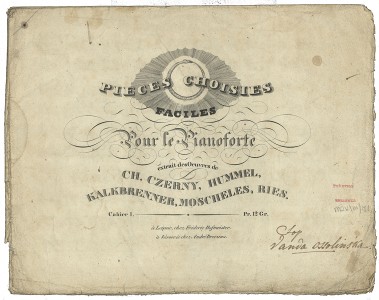 PIECES CHOISIES
FACILES
Pour le Pianoforte
extrait des Oeuvres de
CH. CZERNY, HUMMEL,
KALKBRENNER, MOSCHELES, RIES.
Cahier 1. Pr. 12 Gr.
à Leipsic, chez Frédéric Hofmeister
Vanda Ossolińska